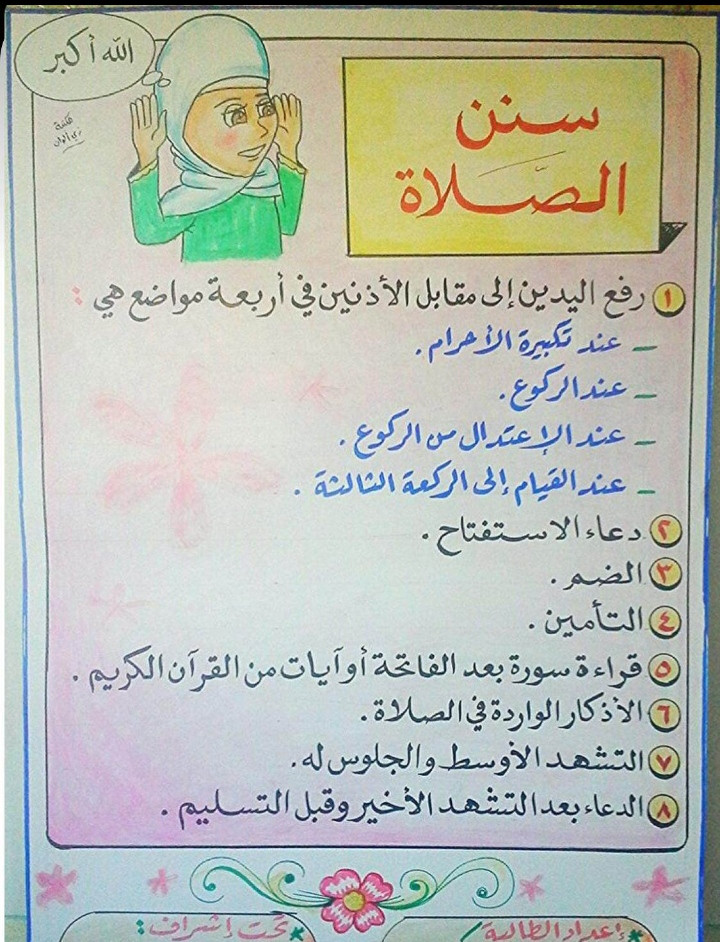 الله أكبر
سنن
الصَّلاة
١ رفع اليدين إلى مقابل الأذنين في أربعة مواضع هي :
- عند تكبيرة الأحرام .
- عند الركوع .
- عند الإعتدال من الركوع .
- عند القيام إلى الركعة الثالثة .
٢ دعاء الاستفتاح .
٣ الضم .
٤ التأمين .
٥ قراءة سورة بعد الفاتحة أو آيات من القرآن الكريم .
٦ الأذكار الواردة في الصلاة .
٧ التشهد الأوسط والجلوس له .
٨ الدعاء بعد التشهد الأخير وقبل التسليم .
* إعداد الطالبة /
* تحت إشراف :